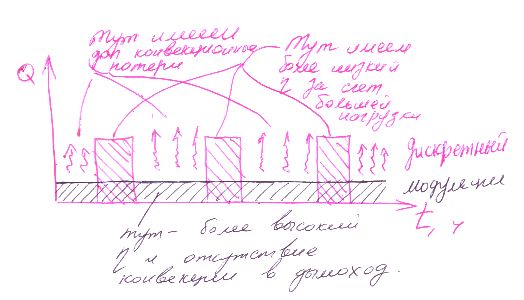 Тут имеем
доп конвекционно
потери
Тут имеем
более низкий
η за счет
большей
нагрузки
Q
дискретный
модуляция
t, ч
тут - более высокий
η и отсутствие
конвекции в дымоход.